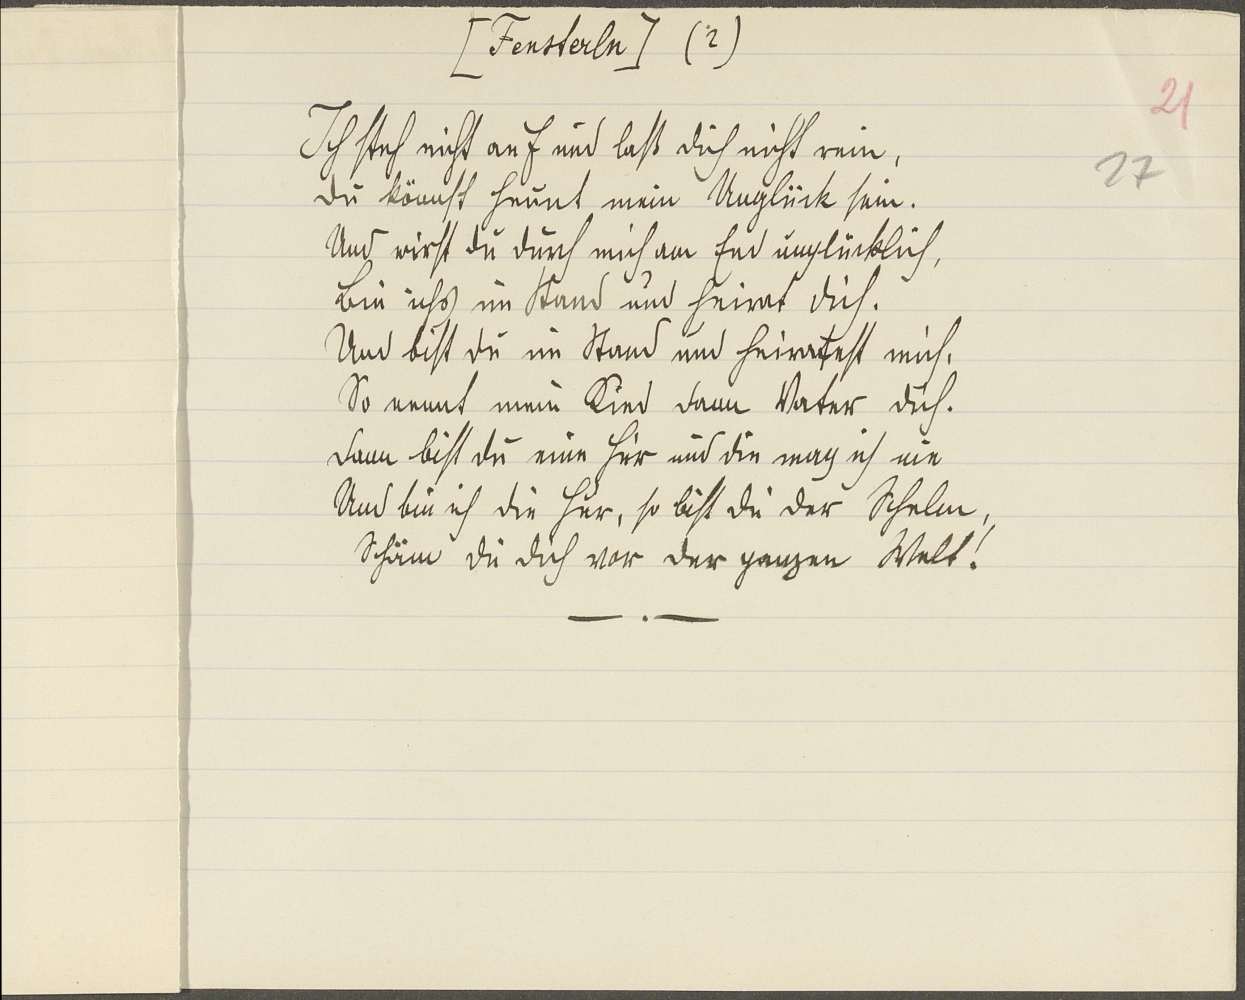 [Fensterln] (2)
21
27
Ich steh nicht auf und laß dich nicht rein,
du könnst heunt mein Unglück sein.
Und wirst du durch mich am End unglücklich,
Bin ichs im Stand und heirat dich.
Und bist du im Stand und heiratest mich,
So nennt mein Kind dann Vater dich.
Dann bist du eine Hur und die mag ich nie
Und bin ich die Hur, so bist du der Schelm,
Schäm du dich vor der ganzen Welt!